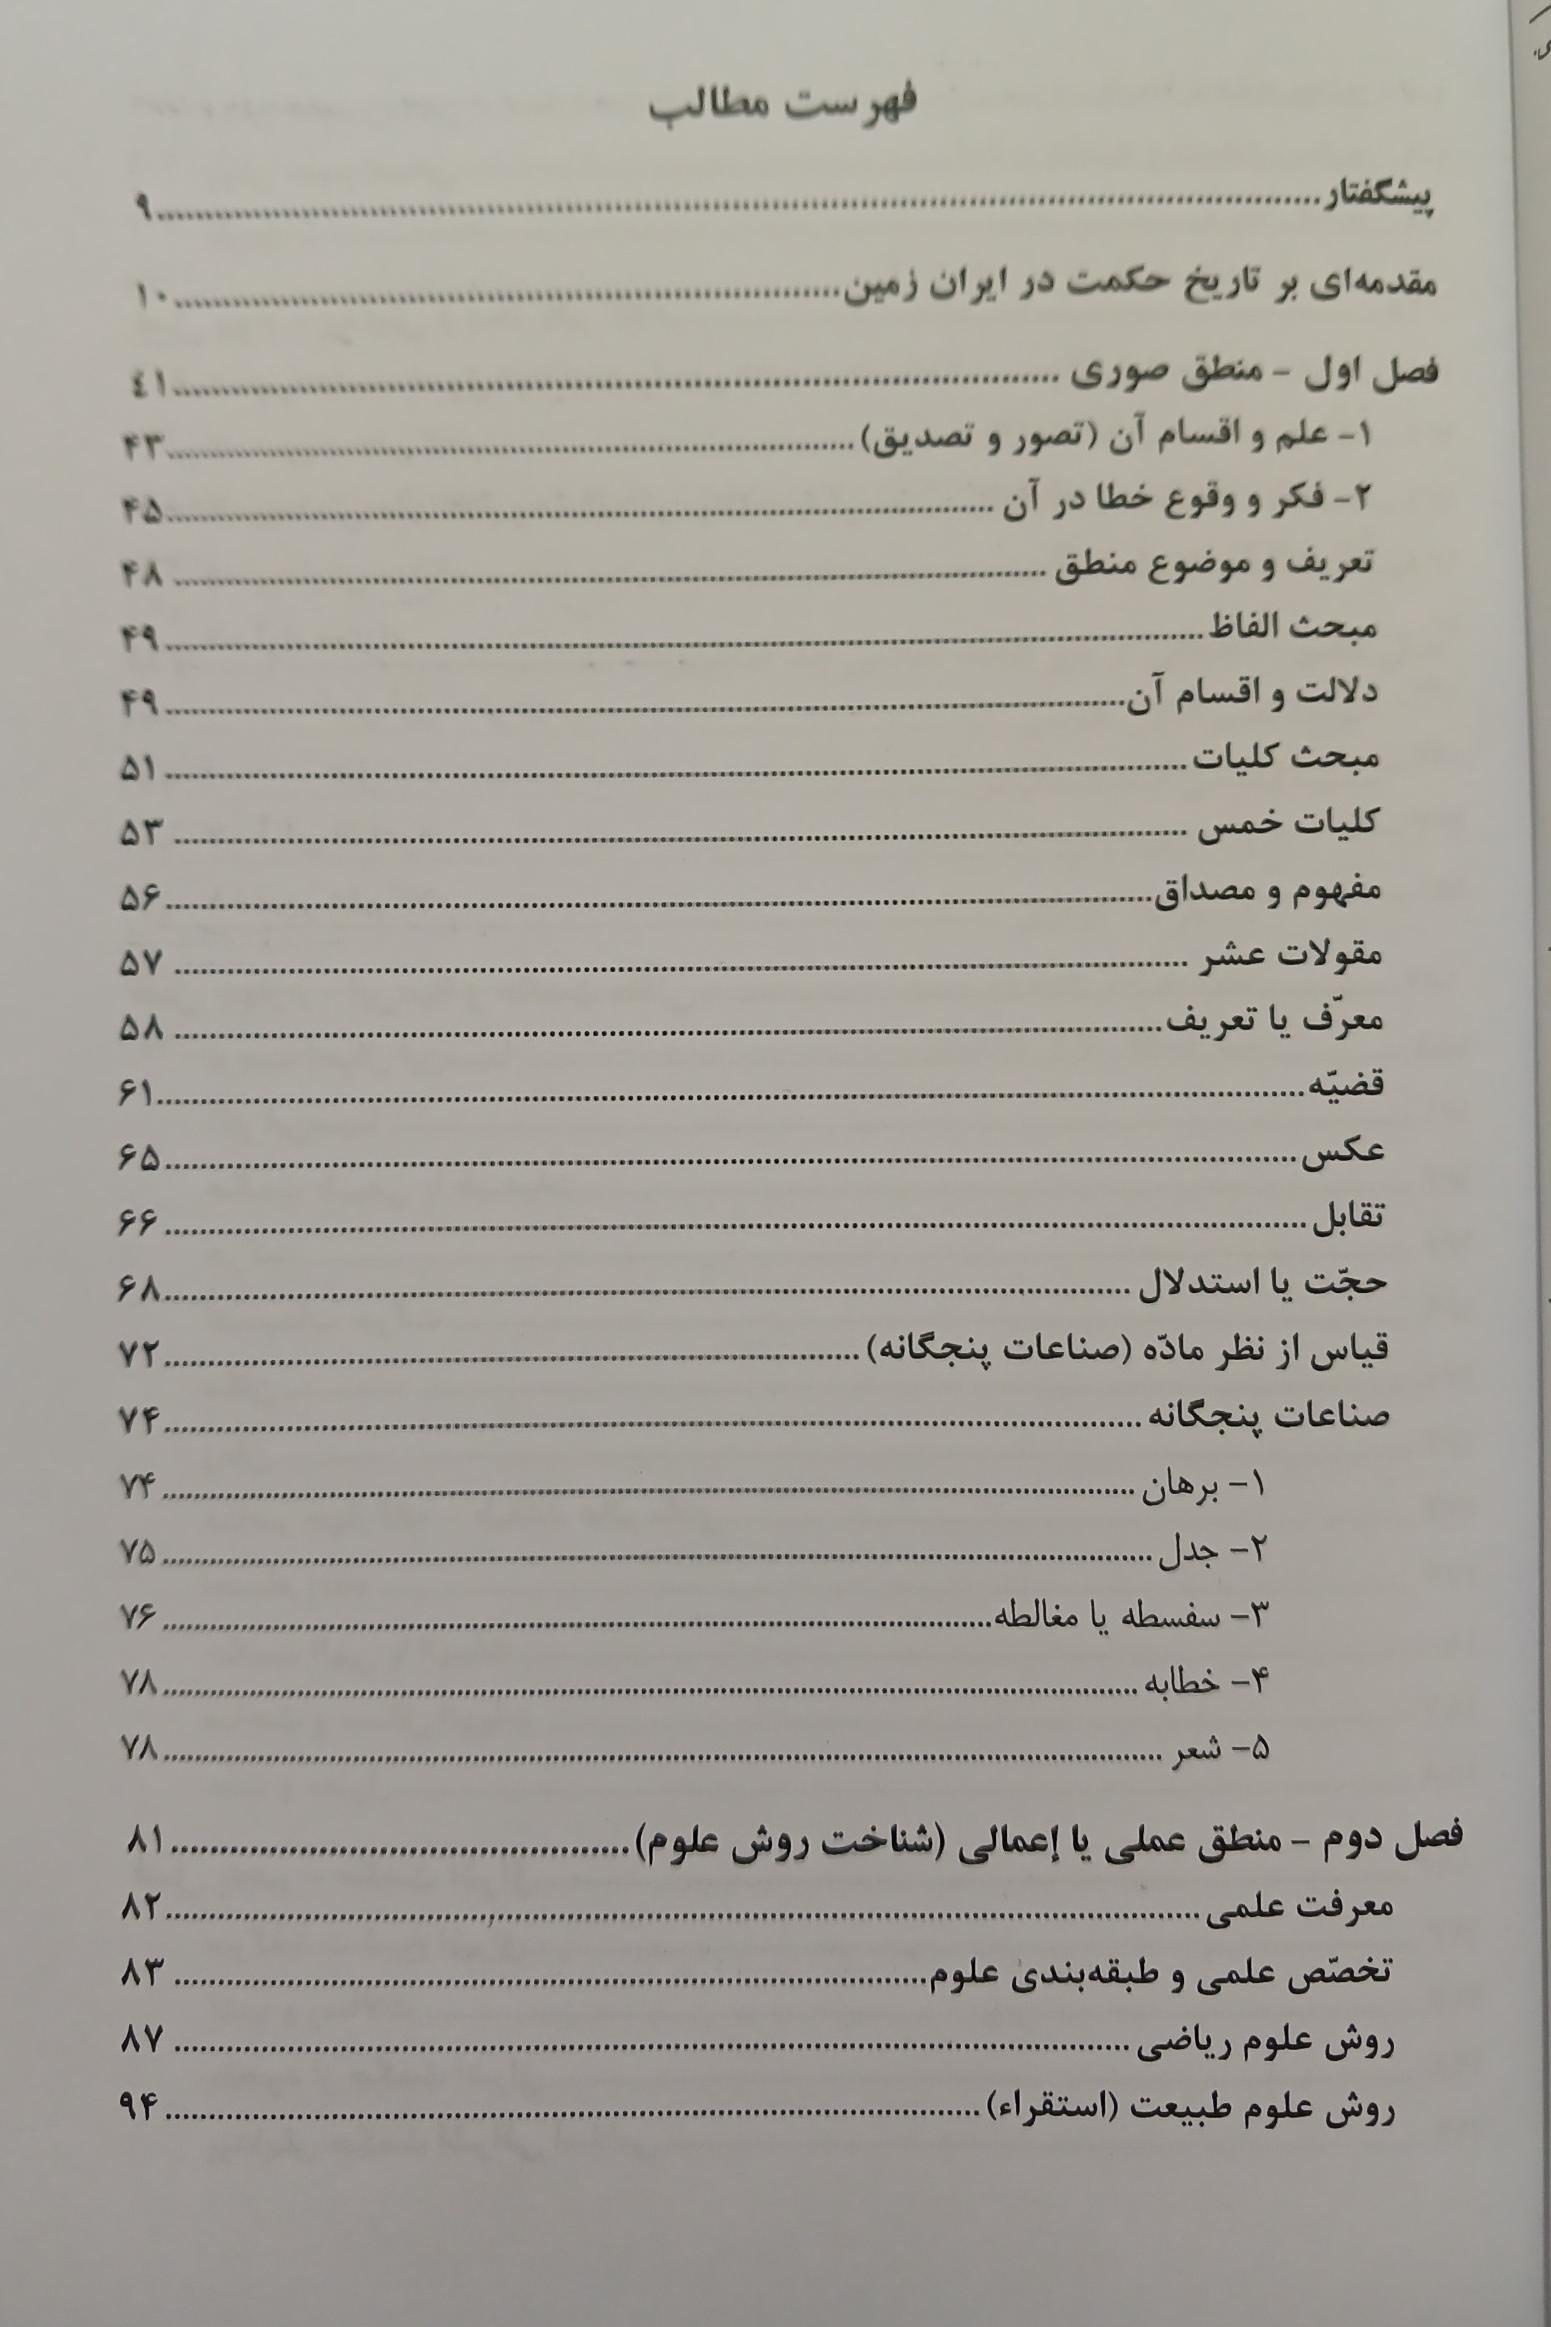 فهرست مطالب
پیشگفتار................................................................۹
مقدمه‌ای بر تاریخ حکمت در ایران زمین................................................................۱۰
فصل اول - منطق صوری ................................................................٤١
۱- علم و اقسام آن (تصور و تصدیق)................................................................۴۳
۲- فکر و وقوع خطا در آن ................................................................۴۵
تعریف و موضوع منطق ................................................................ ۴۸
مبحث الفاظ................................................................۴۹
دلالت و اقسام آن................................................................۴۹
مبحث کلیات................................................................۵۱
کلیات خمس ................................................................ ۵۳
مفهوم و مصداق................................................................۵۶
مقولات عشر ................................................................ ۵۷
معرّف یا تعریف................................................................ ۵۸
قضیّه................................................................۶۱
عکس................................................................۶۵
تقابل................................................................۶۶
حجّت یا استدلال ................................................................۶۸
قیاس از نظر مادّه (صناعات پنجگانه)................................................................۷۲
صناعات پنجگانه................................................................۷۴
۱- برهان ................................................................۷۴
۲- جدل................................................................۷۵
۳- سفسطه یا مغالطه................................................................۷۶
۴- خطابه................................................................۷۸
۵- شعر ................................................................۷۸
فصل دوم - منطق عملی یا إعمالی (شناخت روش علوم)................................................................۸۱
معرفت علمی................................................................۸۲
تخصّص علمی و طبقه‌بندی علوم................................................................ ۸۳
روش علوم ریاضی................................................................ ۸۷
روش علوم طبیعت (استقراء)................................................................۹۴